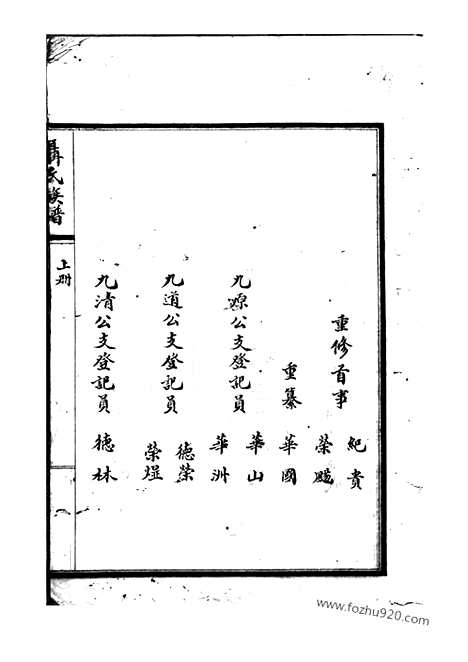 重修首事 紀貴
榮颺
重纂 華國
九源公支登記員 華山
華洲
九道公支登記員 德榮
榮煋
九清公支登記員 德林
聶氏族譜
上册
www.fozhu920.com